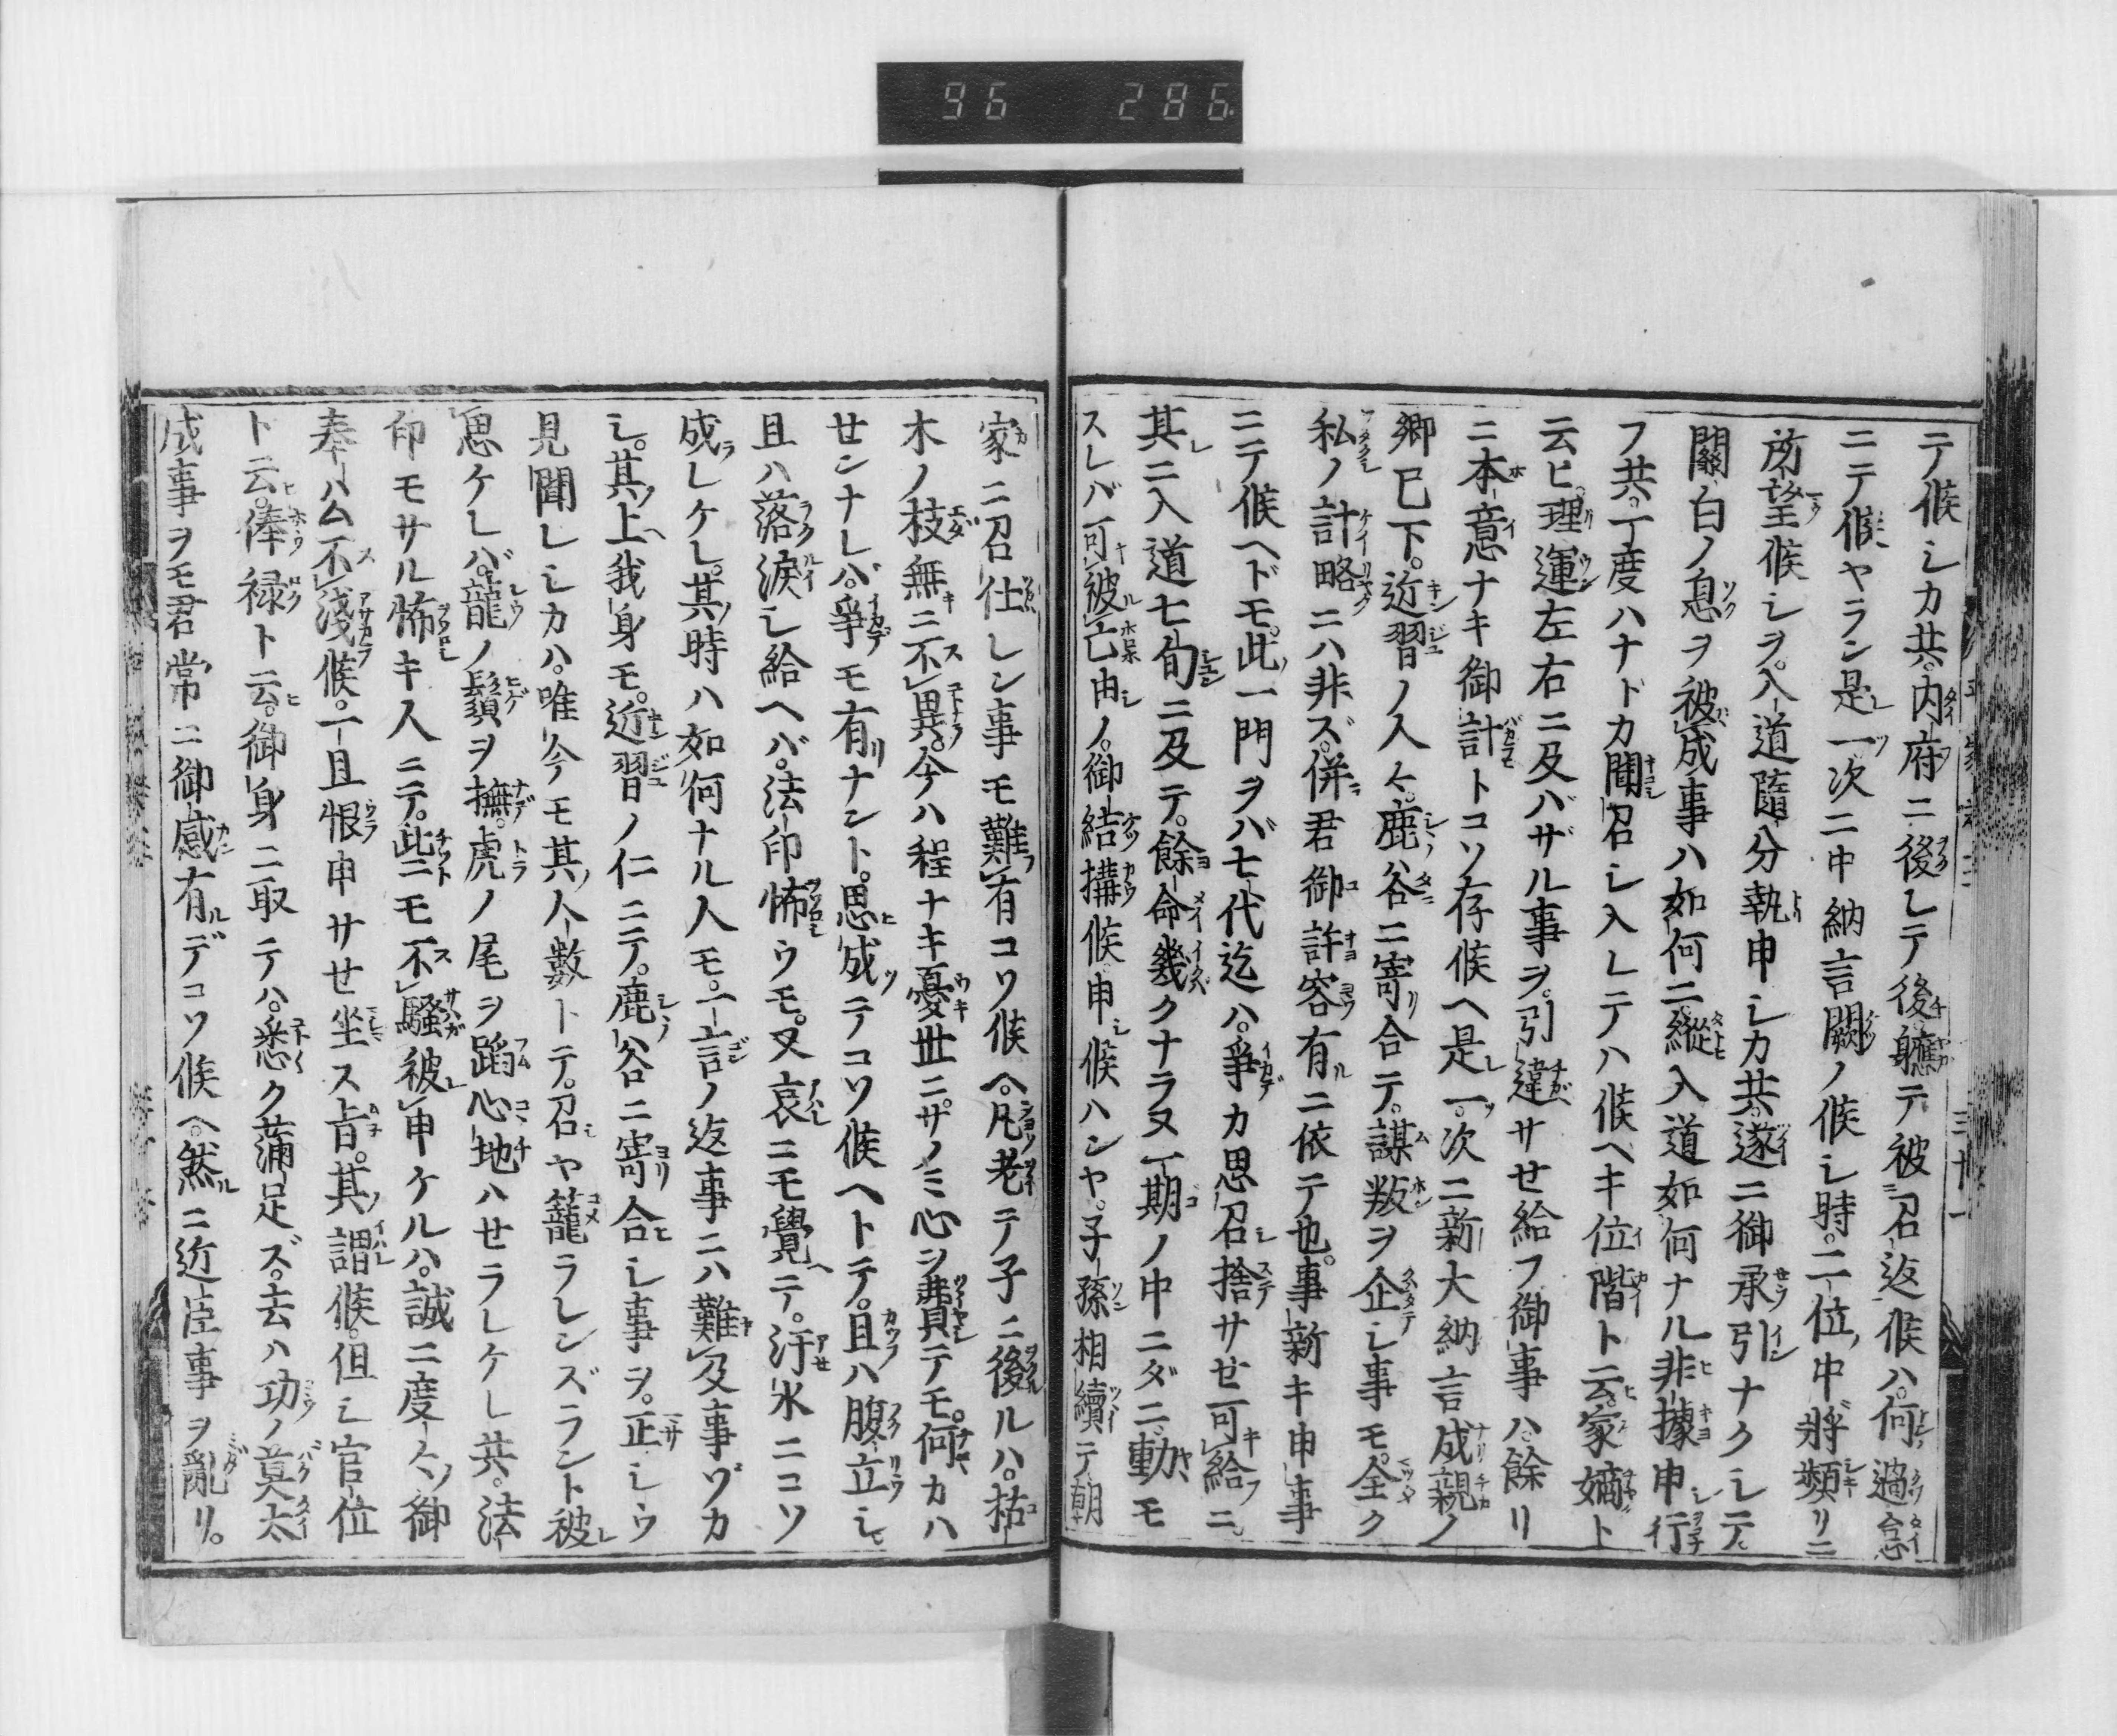 96 286
テ候シカ共。内府ニ後レテ後軈テ被召返候ハ。何ノ過怠
ニテ候ヤラン是一。次ニ中納言闕ノ候シ時。二位中將頻リニ
所望候シヲ。入道隨分執申シカ共。遂ニ御承引ナクシテ
關白ノ息ヲ被成事ハ如何ニ。縱入道如何ナル非據申行
フ共。一度ハナドカ聞召シ入レテハ候ヘキ位階ト云ヒ。家嫡ト
云ヒ。理運左右ニ及バザル事ヲ。引違サセ給フ御事ハ餘リ
ニ本意ナキ御計トコソ存候ヘ是一。次ニ新大納言成親ノ
卿已下。近習ノ人々。鹿谷ニ寄合テ。謀叛ヲ企シ事モ。全ク
私ノ計略ニハ非ズ。併君御許容有ニ依テ也。事新キ申事
ニテ候ヘドモ。此一門ヲバ七代迄ハ。爭カ思召捨サセ可給ニ。
其ニ入道七旬ニ及テ。餘命幾クナラヌ一期ノ中ニダニ動モ
スレバ可被亡由ノ。御結搆候申候ハンヤ。子孫相續テ朝
家ニ召仕レン事モ難有コソ候ヘ。凡老テ子ニ後ルハ。枯
木ノ枝無ニ不異。今ハ程ナキ憂世ニ。サノミ心ヲ費テモ。何カハ
せンナレハ。爭モ有ナント。思成テコソ候ヘトテ。且ハ腹立シ
且ハ落涙シ給ヘバ。法印怖ウモ。又哀ニモ覺テ。汗水ニコソ
成レケレ。其時ハ如何ナル人モ。一言ノ返事ニハ難及事ゾカ
シ。其上我身モ。近習ノ仁ニテ。鹿谷ニ寄合シ事ヲ。正シウ
見聞レシカハ。唯今モ其人數トテ。召ヤ籠ランズラント被
思ケレバ。龍ノ鬚ヲ撫。虎ノ尾ヲ蹈心地ハセラレケレ共。法
印モサル怖キ人ニテ。此ニモ不騷被申ケルハ。誠ニ度々ノ御
奉公不淺候。一旦恨申サセ坐ス旨。其謂候。但シ官位
ト云。俸禄ト云。御身ニ取テハ。悉ク滿足ズ。去ハ功ノ莫太
成事ヲモ君常ニ御感有デコソ候ヘ。然ニ近臣事ヲ亂リ。